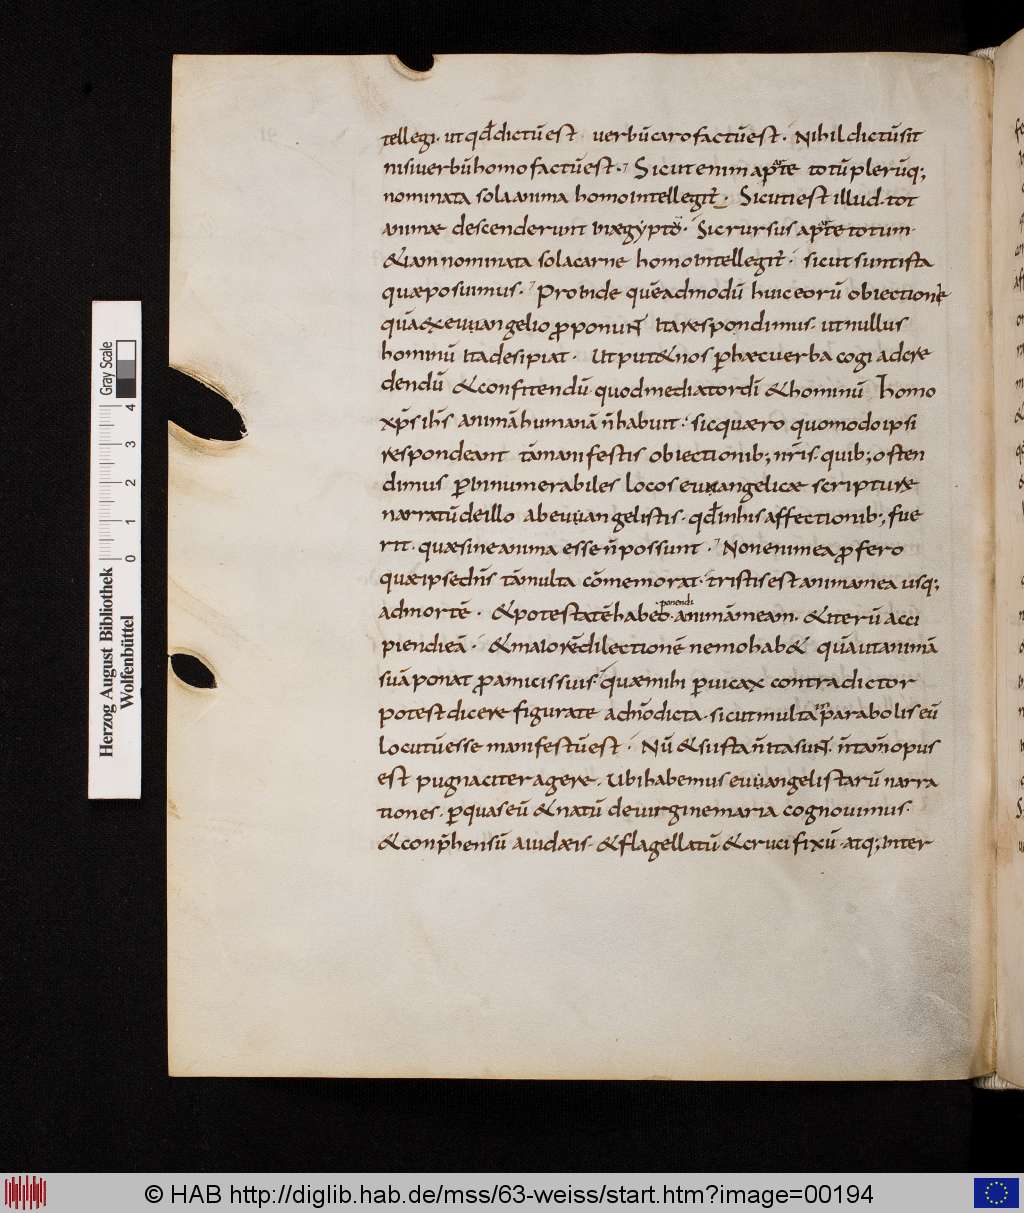 tellegi. ut qđ dictū est. uerbū caro factū est. Nihil dictū sit
nisi uerbū homo factū est. Sicut enim a parte totū plerūq;
nominata sola anima homo intellegit̄. Sicuti est illud. tot
animæ descenderunt in ægypto. Sic rursus a parte totum.
&iam nominata sola carne homo intellegit̄. sicut sunt ista
quæ posuimus. Proinde quēadmodū huic eorū obiectione
quā ex euuangelio ꝓponunt̄ ita respondimus. ut nullus
hominū ita desipiat. Ut put& nos ꝑ hæc uerba cogi ad cre
dendū & confitendū quod mediator dī & hominū homo
xp̄s ih̄s animā humanā n̄ habuit. sic quæro quomodo ipsi
respondeant tā manifestis obiectionib; nr̄is. quib; osten
dimus ꝑ innumerabiles locos euuangelicæ scripturæ
narratū de illo ab euuangelistis. qđ in his affectionib; fue
rit. quæ sine anima esse n̄ possunt. Non enim ea ꝓfero
quæ ipse dn̄s tā multa cōmemorat. tristis est anima mea usq;
ad mortē. & potestatē habeo ponendi animā meam. & iterū acci
piendi eā. & maiorē dilectionē nemo hab& quā ut animā
suā ponat ꝓ amicis suis quæ mihi ꝑuicax contradictor
potest dicere figurate a dn̄o dicta. sicut multa in parabolis eū
locutū esse manifestū est. Nā &si ista n̄ ita sunt̄. n̄ tam̄ opus
est pugnaciter agere. Ubi habemus euuangelistarū narra
tiones. ꝑ quas eū & natū de uirgine maria cognouimus.
& conp̄hensū a iudæis. & flagellatū & crucifixū. atq; inter
Herzog August Bibliothek
Wolfenbüttel
0 1 2 3 4
Gray Scale
© HAB http://diglib.hab.de/mss/63-weiss/start.htm?image=00194